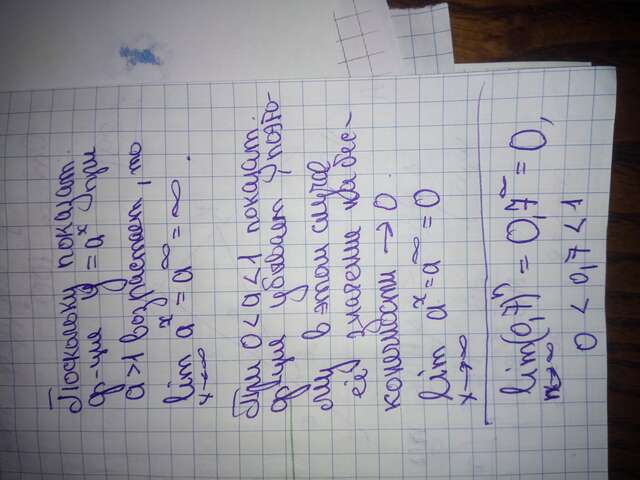 Поскольку показат.
ф-ция y = a^x при
a>1 возрастает, то
lim a^x = a^∞ = ∞.
x→∞
При 0<a<1 показат.
ф-ция убывает, поэто-
му в этом случае
её значение на бес-
конечности → 0.
lim a^x = a^∞ = 0
x→∞
lim (0,7)^n = 0,7^∞ = 0,
n→∞
0 < 0,7 < 1